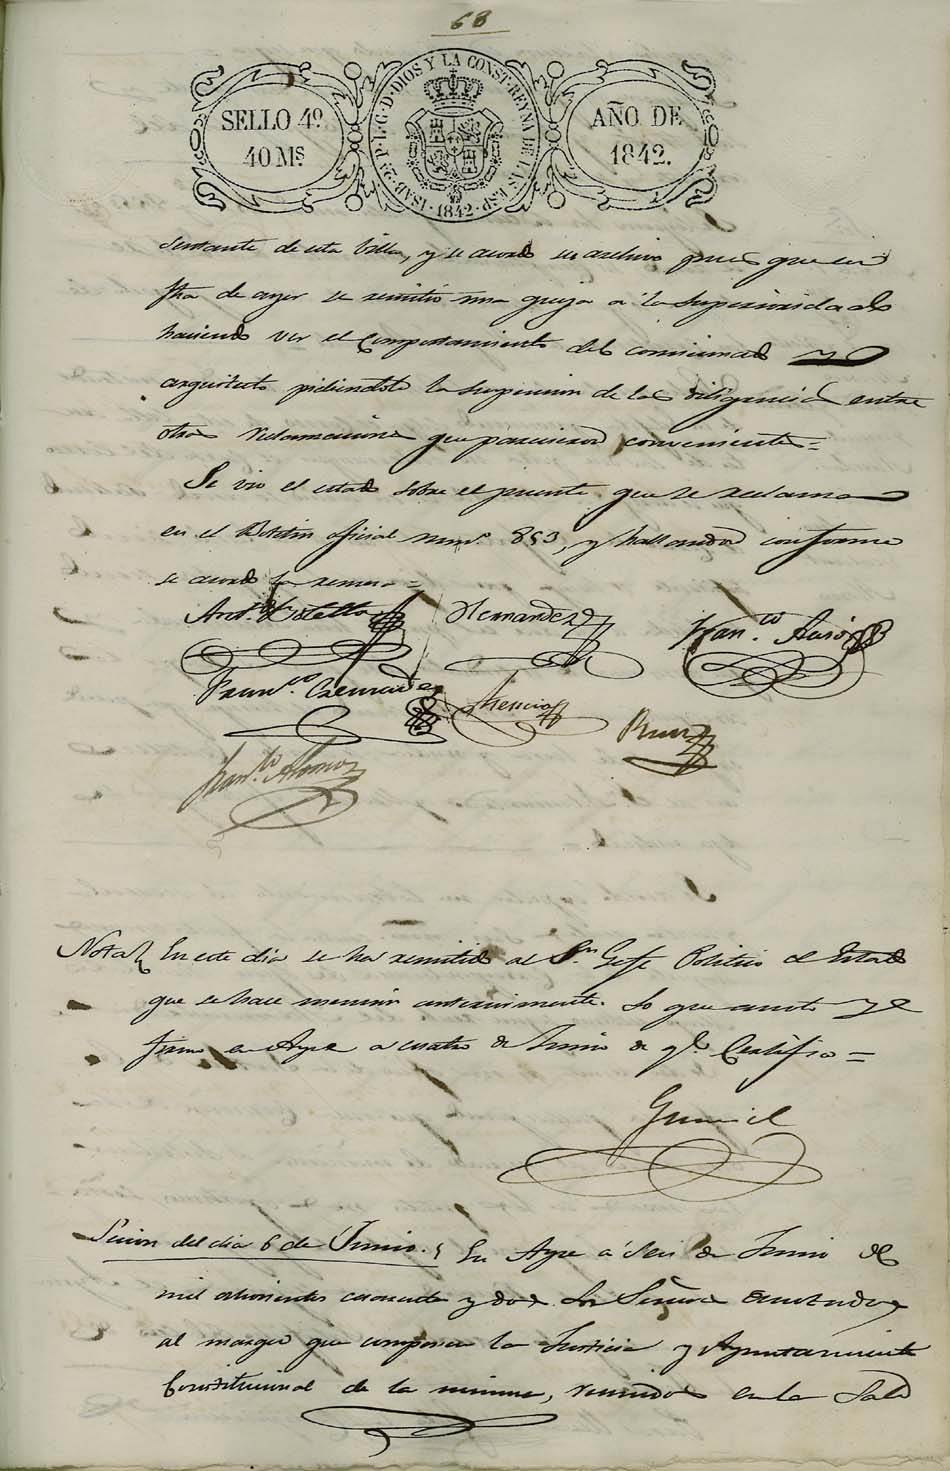 68
SELLO 4º
40 Ms
ISAB. 2ª P. L. G. D. DIOS Y LA CONST. REYNA DE LAS ESP.
1842
AÑO DE
1842.
de esta Villa, y se acordó su archivo pues que en
fha de ayer se remitió una queja a la Superioridad
haciendo ver el Comportamiento del comisionado y
arquitecto pidiendole la suspension de las diligencias entre
otras reclamaciones que parecieron convenientes =
Se vio el estado sobre el puente que se reclama
en el Boletin oficial num.º 853, y hallandose conforme
se acordó su remesa =
Hernandez
Fran.co Ausó
Fran.co
Atencia
Ruiz
Fran.co Alonso
Nota En este dia se ha remitido al Sr. Gefe Politico el Estado
que se hace mencion anteriormente. Lo que anoto y
firmo en Aspe a cuatro de Junio de q.e Certifico =
Gumiel
Sesion del dia 6 de Junio. En Aspe á seis de Junio de
mil ochocientos cuarenta y dos Los Señores anotados
al margen que componen la Justicia y Ayuntamiento
Constitucional de la misma, reunidos en la Sala